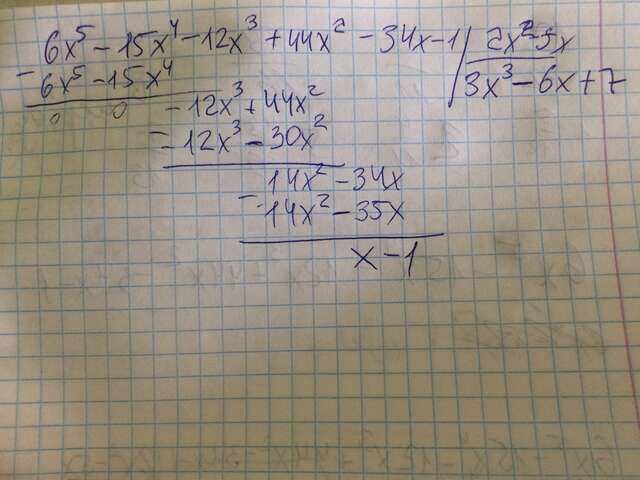 6x⁵ - 15x⁴ - 12x³ + 44x² - 34x - 1 | 2x² - 5x
- 6x⁵ - 15x⁴ | 3x³ - 6x + 7
0 0 - 12x³ + 44x²
- - 12x³ - 30x²
14x² - 34x
- 14x² - 35x
x - 1